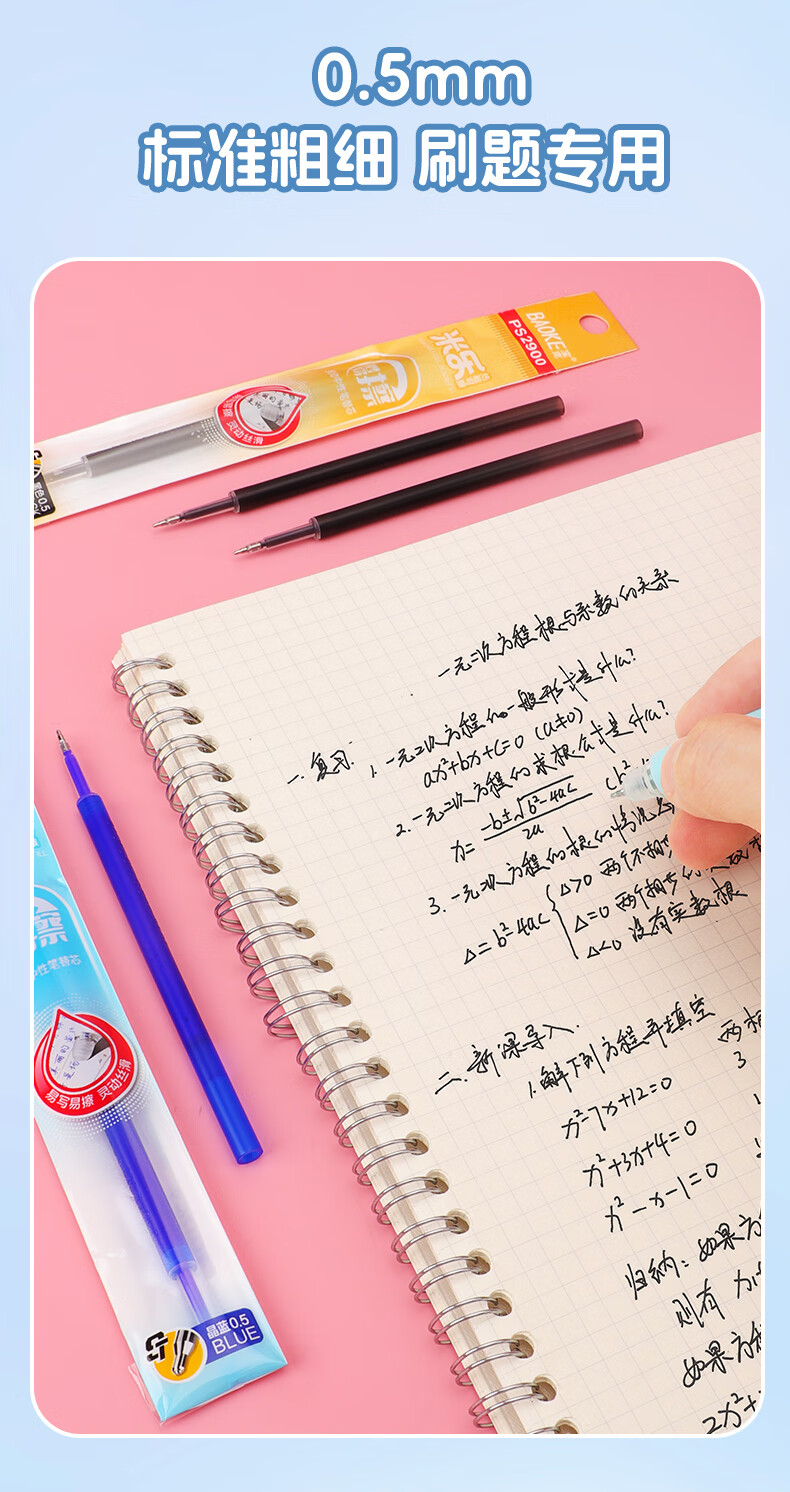 0.5mm
标准粗细 刷题专用
BAOKE宝克
PS2900
米乐
热可擦
灵动丝滑
黑色0.5
一元二次方程根与系数的关系
一.复习. 1.一元二次方程的一般形式是什么?
ax²+bx+c=0 (a≠0)
2.一元二次方程的求根公式是什么?
x=(-b±√(b²-4ac))/2a (b²
3.一元二次方程的根的情况
Δ=b²-4ac { Δ>0 两个不相
Δ=0 两个相等的实数根
Δ<0 没有实数根
二.新课导入.
1.解下列方程再填空 两根
x²-7x+12=0 3
x²+3x+4=0
x²-x-1=0
归纳: 如果方
则有 x₁
如果方程
2x²+
擦
性笔替芯
易写易擦 灵动丝滑
ST
晶蓝0.5
BLUE